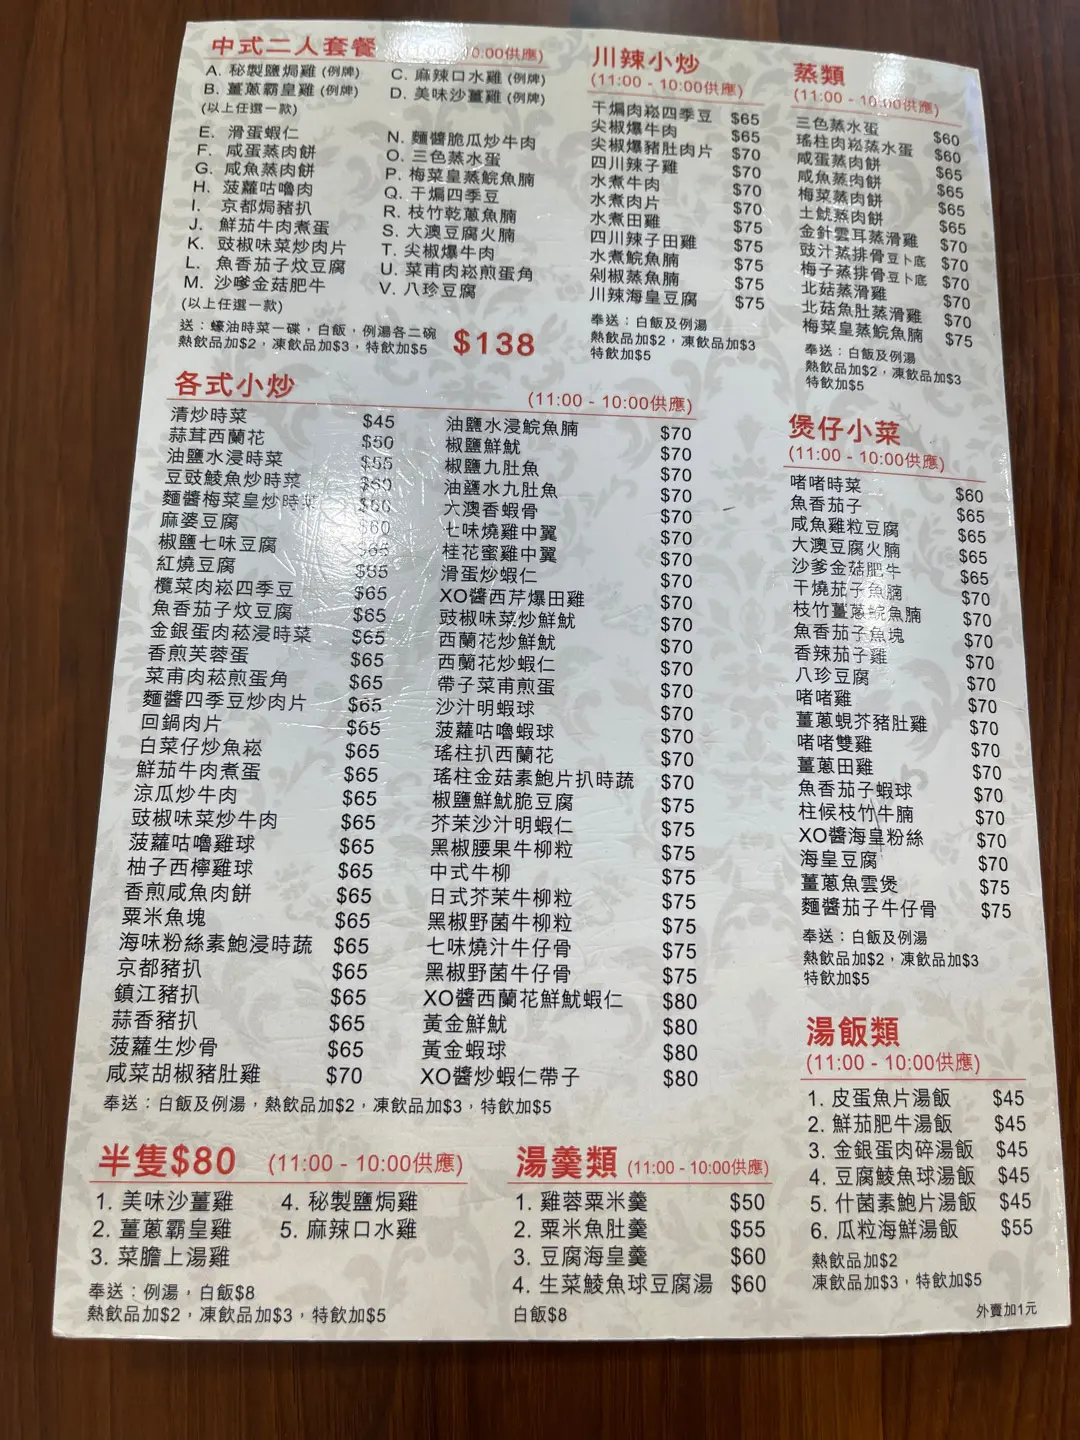 中式二人套餐
10:00供應)
A. 秘製鹽焗雞 (例牌)
B. 薑蔥霸皇雞 (例牌)
C. 麻辣口水雞 (例牌)
D. 美味沙薑雞 (例牌)
(以上任選一款)
E. 滑蛋蝦仁
F. 咸蛋蒸肉餅
G. 咸魚蒸肉餅
H. 菠蘿咕嚕肉
I. 京都焗豬扒
J. 鮮茄牛肉煮蛋
K. 豉椒味菜炒肉片
L. 魚香茄子炆豆腐
M. 沙嗲金菇肥牛
N. 麵醬脆瓜炒牛肉
O. 三色蒸水蛋
P. 梅菜皇蒸鯇魚腩
Q. 干煸四季豆
R. 枝竹乾蔥魚腩
S. 大澳豆腐火腩
T. 尖椒爆牛肉
U. 菜甫肉崧煎蛋角
V. 八珍豆腐
(以上任選一款)
送：蠔油時菜一碟，白飯，例湯各二碗
熱飲品加$2，凍飲品加$3，特飲加$5
$138
川辣小炒
(11:00 - 10:00供應)
干煸肉崧四季豆 $65
尖椒爆牛肉 $65
尖椒爆豬肚肉片 $70
四川辣子雞 $70
水煮牛肉 $70
水煮肉片 $70
水煮田雞 $75
四川辣子田雞 $75
水煮鯇魚腩 $75
剁椒蒸魚腩 $75
川辣海皇豆腐 $75
奉送：白飯及例湯
熱飲品加$2，凍飲品加$3
特飲加$5
蒸類
(11:00 - 10:00供應)
三色蒸水蛋 $60
瑤柱肉崧蒸水蛋 $60
咸蛋蒸肉餅 $65
咸魚蒸肉餅 $65
梅菜蒸肉餅 $65
土魷蒸肉餅 $65
金針雲耳蒸滑雞 $70
豉汁蒸排骨豆卜底 $70
梅子蒸排骨豆卜底 $70
北菇蒸滑雞 $70
北菇魚肚蒸滑雞 $70
梅菜皇蒸鯇魚腩 $75
奉送：白飯及例湯
熱飲品加$2，凍飲品加$3
特飲加$5
各式小炒
(11:00 - 10:00供應)
清炒時菜 $45
蒜茸西蘭花 $50
油鹽水浸時菜 $55
豆豉鯪魚炒時菜 $60
麵醬梅菜皇炒時菜 $60
麻婆豆腐 $60
椒鹽七味豆腐 $65
紅燒豆腐 $65
欖菜肉崧四季豆 $65
魚香茄子炆豆腐 $65
金銀蛋肉菘浸時菜 $65
香煎芙蓉蛋 $65
菜甫肉菘煎蛋角 $65
麵醬四季豆炒肉片 $65
回鍋肉片 $65
白菜仔炒魚崧 $65
鮮茄牛肉煮蛋 $65
涼瓜炒牛肉 $65
豉椒味菜炒牛肉 $65
菠蘿咕嚕雞球 $65
柚子西檸雞球 $65
香煎咸魚肉餅 $65
粟米魚塊 $65
海味粉絲素鮑浸時蔬 $65
京都豬扒 $65
鎮江豬扒 $65
蒜香豬扒 $65
菠蘿生炒骨 $65
咸菜胡椒豬肚雞 $70
油鹽水浸鯇魚腩 $70
椒鹽鮮魷 $70
椒鹽九肚魚 $70
油鹽水九肚魚 $70
大澳香蝦骨 $70
七味燒雞中翼 $70
桂花蜜雞中翼 $70
滑蛋炒蝦仁 $70
XO醬西芹爆田雞 $70
豉椒味菜炒鮮魷 $70
西蘭花炒鮮魷 $70
西蘭花炒蝦仁 $70
帶子菜甫煎蛋 $70
沙汁明蝦球 $70
菠蘿咕嚕蝦球 $70
瑤柱扒西蘭花 $70
瑤柱金菇素鮑片扒時蔬 $70
椒鹽鮮魷脆豆腐 $75
芥茉沙汁明蝦仁 $75
黑椒腰果牛柳粒 $75
中式牛柳 $75
日式芥茉牛柳粒 $75
黑椒野菌牛柳粒 $75
七味燒汁牛仔骨 $75
黑椒野菌牛仔骨 $75
XO醬西蘭花鮮魷蝦仁 $80
黃金鮮魷 $80
黃金蝦球 $80
XO醬炒蝦仁帶子 $80
奉送：白飯及例湯，熱飲品加$2，凍飲品加$3，特飲加$5
煲仔小菜
(11:00 - 10:00供應)
啫啫時菜 $60
魚香茄子 $65
咸魚雞粒豆腐 $65
大澳豆腐火腩 $65
沙爹金菇肥牛 $65
干燒茄子魚腩 $70
枝竹薑蔥鯇魚腩 $70
魚香茄子魚塊 $70
香辣茄子雞 $70
八珍豆腐 $70
啫啫雞 $70
薑蔥蜆芥豬肚雞 $70
啫啫雙雞 $70
薑蔥田雞 $70
魚香茄子蝦球 $70
柱候枝竹牛腩 $70
XO醬海皇粉絲 $70
海皇豆腐 $70
薑蔥魚雲煲 $75
麵醬茄子牛仔骨 $75
奉送：白飯及例湯
熱飲品加$2，凍飲品加$3
特飲加$5
湯飯類
(11:00 - 10:00供應)
1. 皮蛋魚片湯飯 $45
2. 鮮茄肥牛湯飯 $45
3. 金銀蛋肉碎湯飯 $45
4. 豆腐鯪魚球湯飯 $45
5. 什菌素鮑片湯飯 $45
6. 瓜粒海鮮湯飯 $55
熱飲品加$2
凍飲品加$3，特飲加$5
半隻$80 (11:00 - 10:00供應)
1. 美味沙薑雞
2. 薑蔥霸皇雞
3. 菜膽上湯雞
4. 秘製鹽焗雞
5. 麻辣口水雞
奉送：例湯，白飯$8
熱飲品加$2，凍飲品加$3，特飲加$5
湯羹類 (11:00 - 10:00供應)
1. 雞蓉粟米羹 $50
2. 粟米魚肚羹 $55
3. 豆腐海皇羹 $60
4. 生菜鯪魚球豆腐湯 $60
白飯$8
外賣加1元